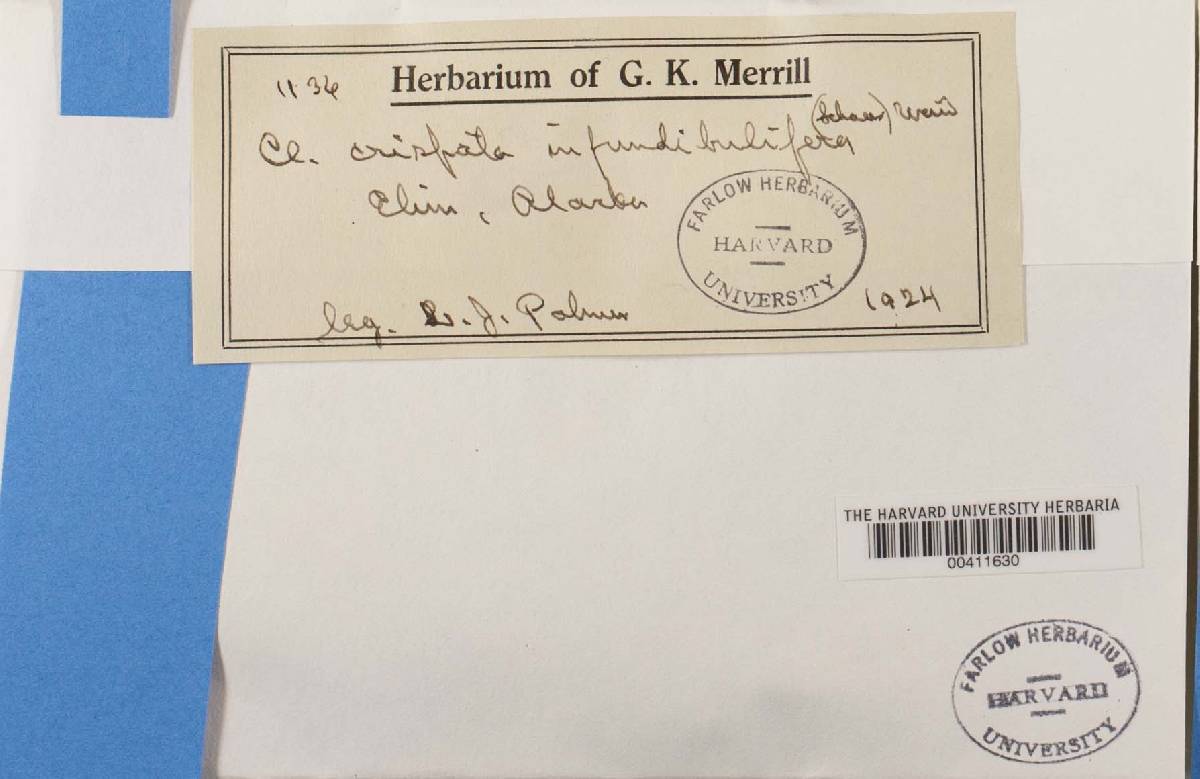 1136 Herbarium of G. K. Merrill
Cl. crispata infundibulifera (Schaer) Wain
Elim, Alaska
FARLOW HERBARIUM
HARVARD
UNIVERSITY
leg. L. J. Palmer
1924
THE HARVARD UNIVERSITY HERBARIA
00411630
FARLOW HERBARIUM
HARVARD
UNIVERSITY